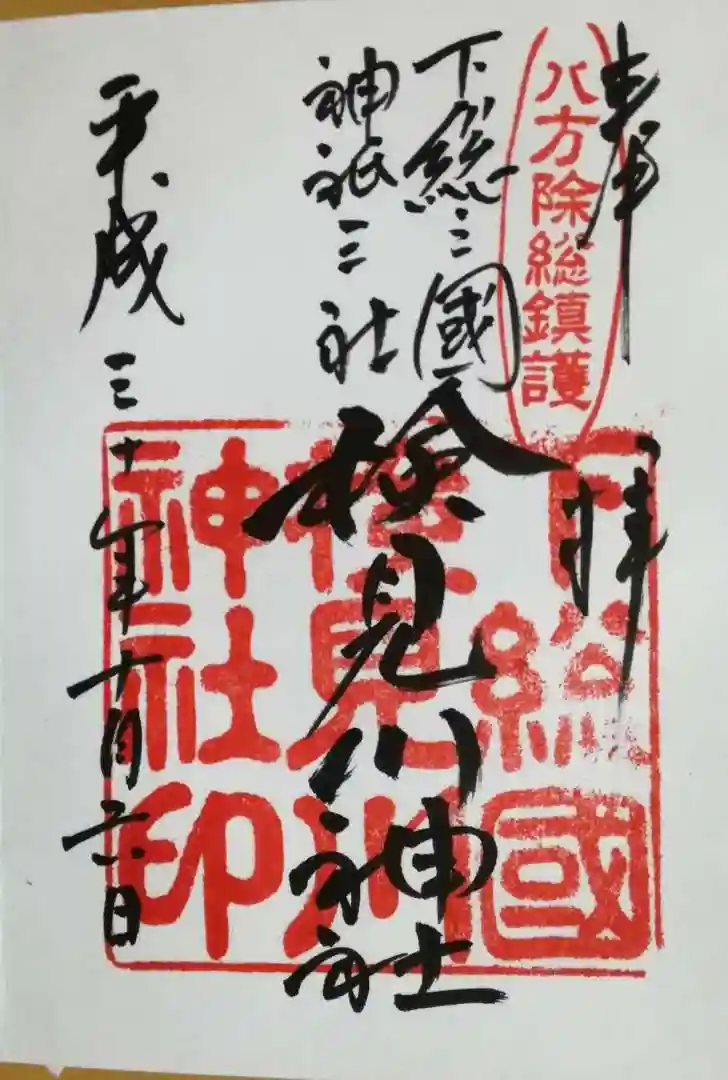 奉拝
八方除総鎮護
下総三國
神祇三社
検見川神社
下総國
検見川
神社印
平成三十年十月六日